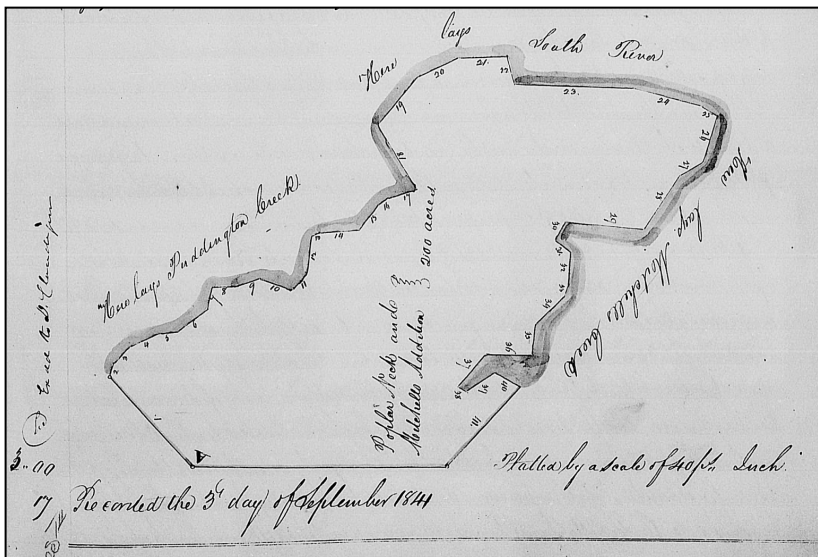 Here lays South River
Here lays Puddington Creek
Here lays Mitchells Creek
Poplar Neck and
Mitchells Addition
200 acres
A
1
2
3
4
5
6
7
8
9
10
11
12
14
15
16
17
18
19
20
21
22
23
24
25
26
27
28
29
30
32
33
34
35
36
37
38
39
40
41
Platted by a scale of 40 ps Inch
Recorded the 3d day of September 1841
Exed to D. Claude